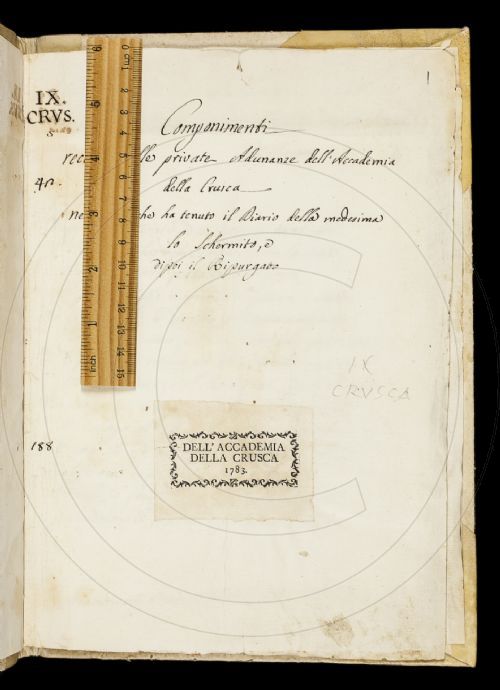 1
IX.
CRVS.
Componimenti
rec lle private Adunanze dell'Accademia
della Crusca
ne he ha tenuto il Diario della medesima
lo Schermito, e
dipoi il Ripurgato
IX
CRVSCA
188
DELL'ACCADEMIA
DELLA CRUSCA
1783.
0 cm 1 2 3 4 5 6 7 8 9 10 11 12 13 14 15
6 5 4 3 2 1 inch